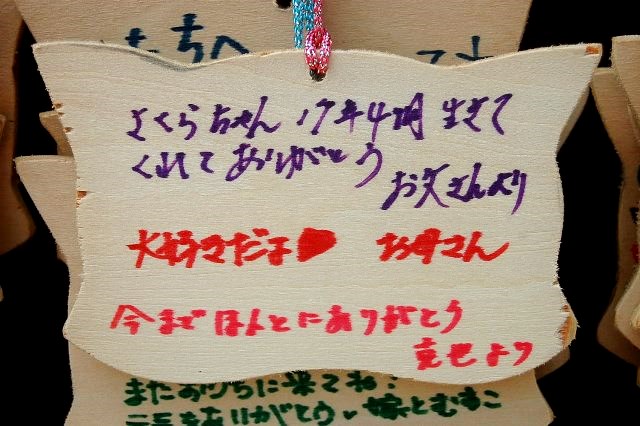 たちへ
さくらちゃん 17年4ヶ月 生きて
くれて ありがとう
お父さんより
大好きだよ♥ お母さん
今まで ほんとにありがとう
克也より
またおうちに来てね!
をありがとう、嫁とむすこ